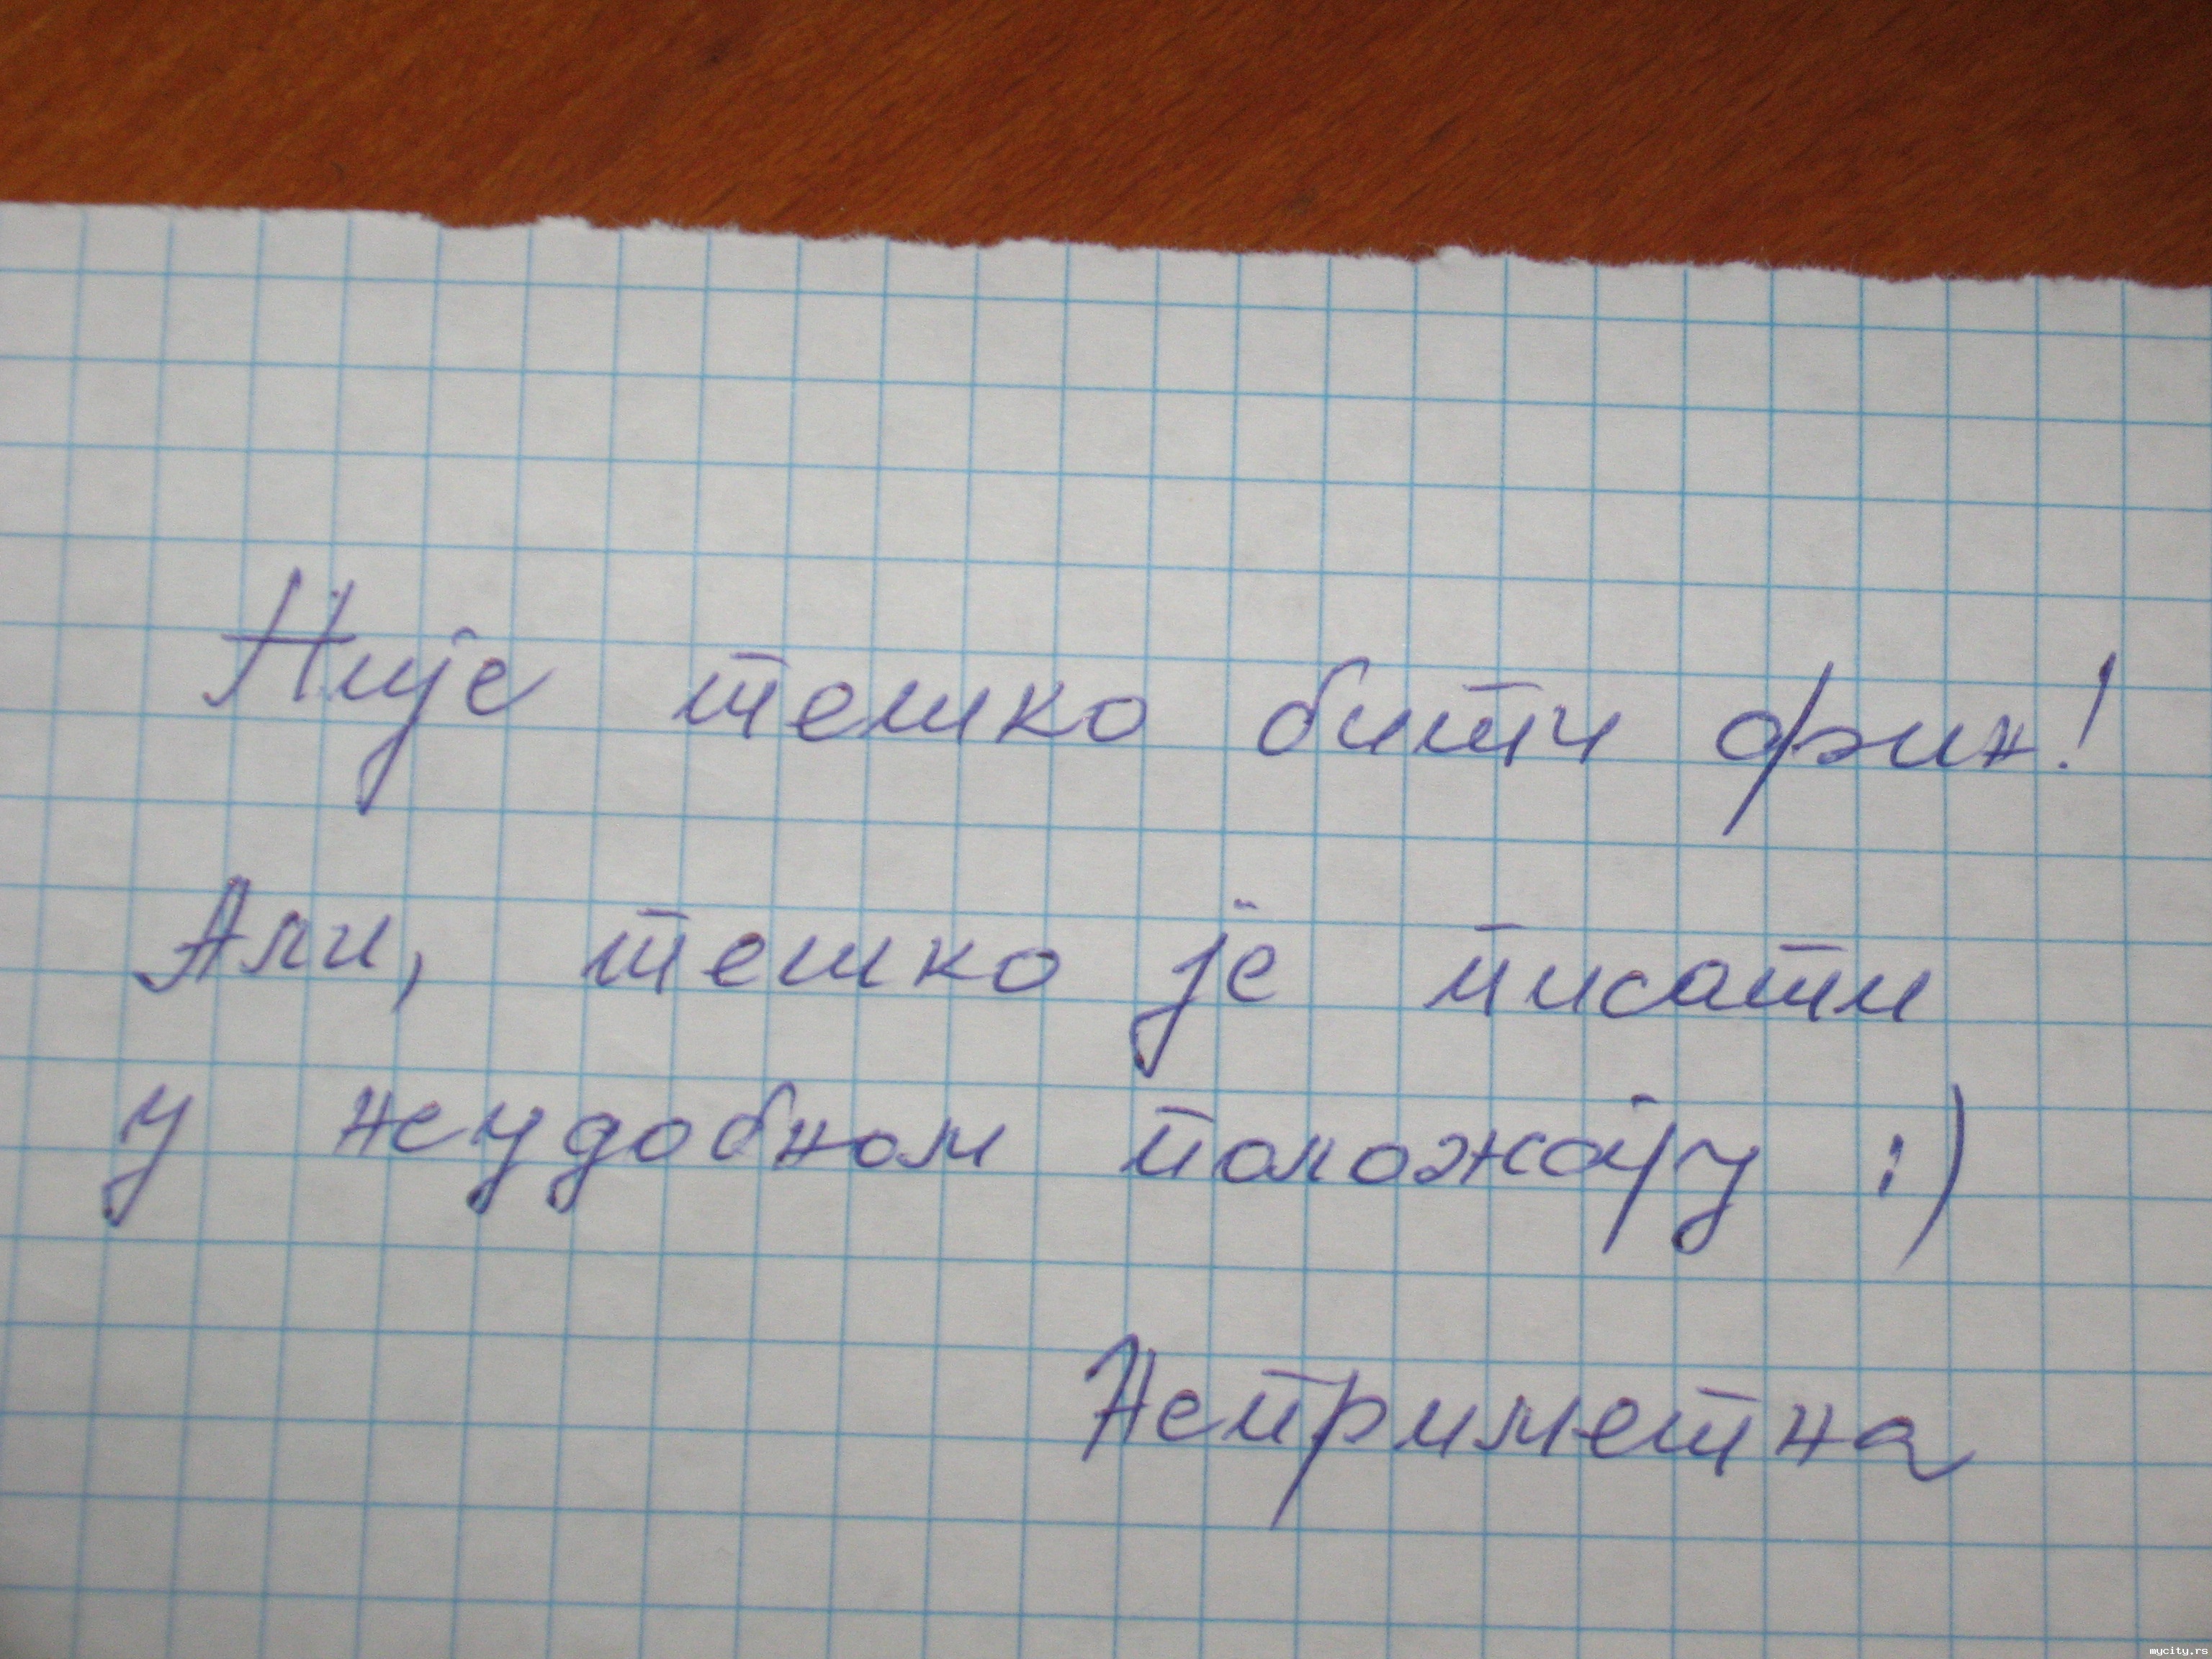 Није тешко бити фин!
Али, тешко је писати
у неудобном положају :)
Неприметна
mycity.rs